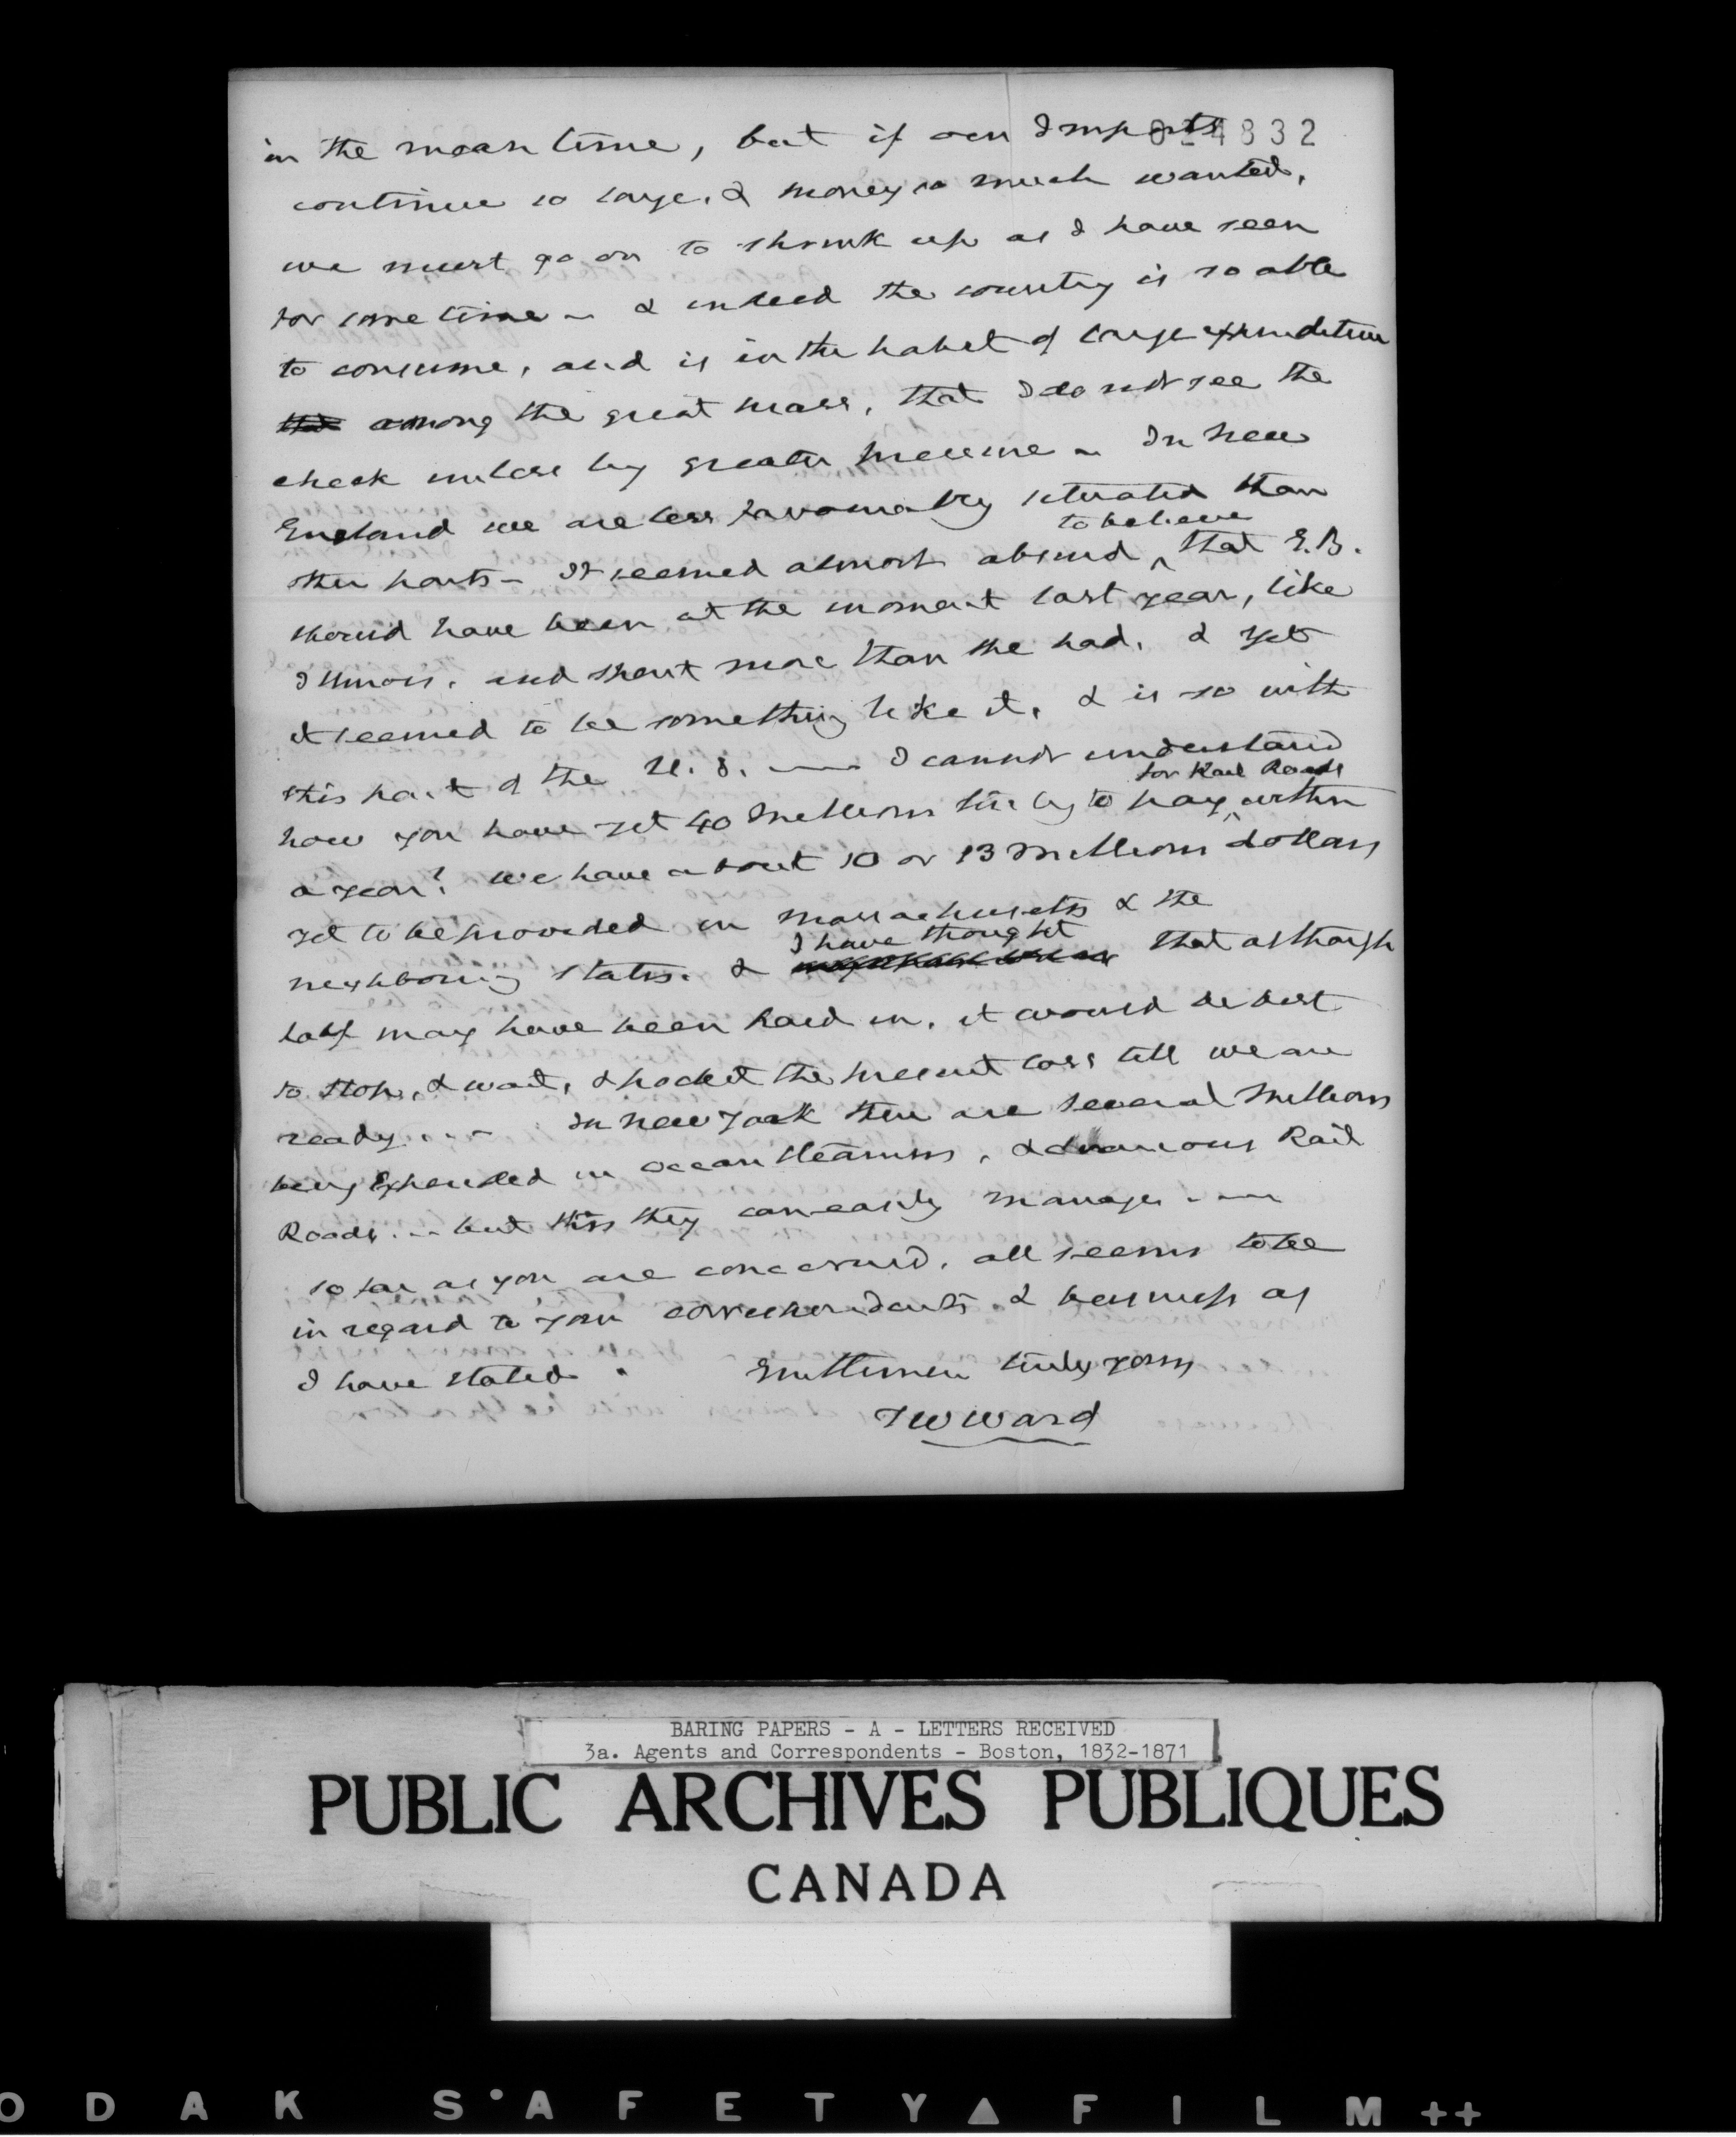 024832
in the mean time, but if our Imports
continue so large, & money so much wanted,
we must go on to shrink up as I have seen
for some time ~ & indeed the country is so able
to consume, and is in the habit of large expenditure
that among the great mass, that I do not see the
check unless by greater pressure ~ In New
England we are less favourably situated than
other parts - It seemed almost absurd to believe that G.B.
should have been at the moment last year, like
Illinois, and spent more than she had, & yet
it seemed to be something like it, & is so with
this part of the U.S. — I cannot understand
how you have yet 40 Millions Stg to pay for Rail Roads within
a year? We have about 10 or 13 Millions dollars
yet to be provided in Massachusetts & the
neighbouring states. & I have thought that although
half may have been paid in, it would be best
to stop, & wait, & pocket the present loss till we are
ready... - In New York there are several Millions
being Expended in Ocean Steamers, & various Rail
Roads. .- but this they can easily manage. —
so far as you are concerned, all seems to be
in regard to your correspondents & business as
I have stated. Gentlemen truly yours
TW Ward
BARING PAPERS - A - LETTERS RECEIVED
3a. Agents and Correspondents - Boston, 1832-1871
PUBLIC ARCHIVES PUBLIQUES
CANADA
ODAK S•AFETY▲FILM++